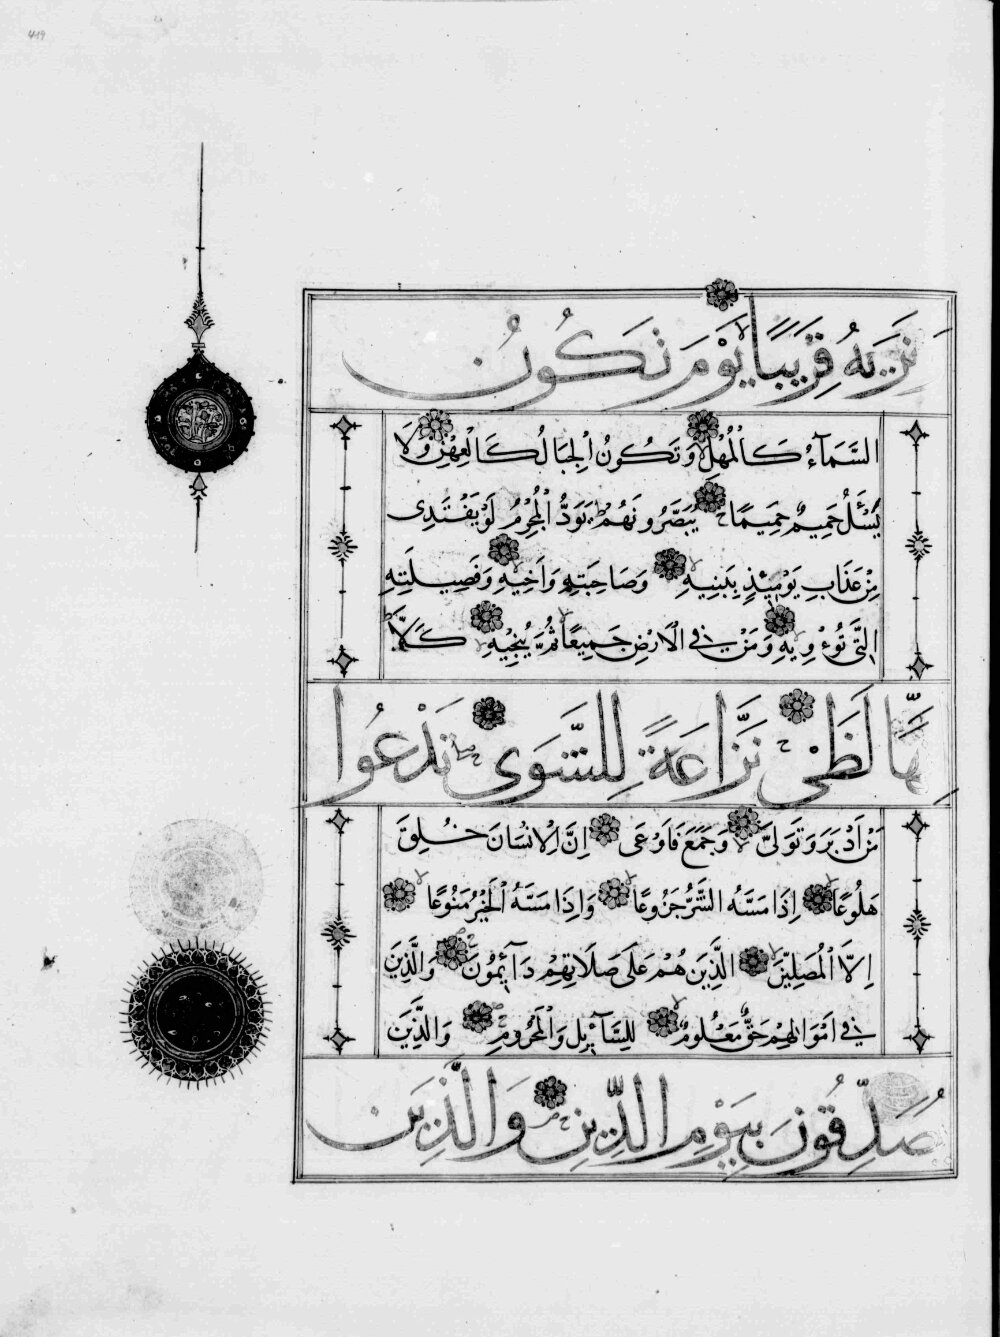 وَنَرَيهُ قَرِيبًا يَوْمَ تَكُونُ
السَّمَآءُ كَالْمُهْلِ وَتَكُونُ الْجِبَالُ كَالْعِهْنِ وَلَا
يَسْئَلُ حَمِيمٌ حَمِيمًا يُبَصَّرُونَهُمْ يَوَدُّ الْمُجْرِمُ لَوْ يَفْتَدِى
مِنْ عَذَابِ يَوْمِئِذٍ بِبَنِيهِ وَصَاحِبَتِهِ وَاَخِيهِ وَفَصِيلَتِهِ
الَّتِى تُؤْوِيهِ وَمَنْ فِى الْاَرْضِ جَمِيعًا ثُمَّ يُنْجِيهِ كَلَّا
اِنَّهَا لَظَى نَزَّاعَةً لِلشَّوَى تَدْعُوا
مَنْ اَدْبَرَ وَتَوَلَّى وَجَمَعَ فَاَوْعَى اِنَّ الْاِنْسَانَ خُلِقَ
هَلُوعًا اِذَا مَسَّهُ الشَّرُّ جَزُوعًا وَاِذَا مَسَّهُ الْخَيْرُ مَنُوعًا
اِلَّا الْمُصَلِّينَ الَّذِينَ هُمْ عَلَى صَلَاتِهِمْ دَآئِمُونَ وَالَّذِينَ
فِى اَمْوَالِهِمْ حَقٌّ مَعْلُومٌ لِلسَّآئِلِ وَالْمَحْرُومِ وَالَّذِينَ
يُصَدِّقُونَ بِيَوْمِ الدِّينِ وَالَّذِينَ